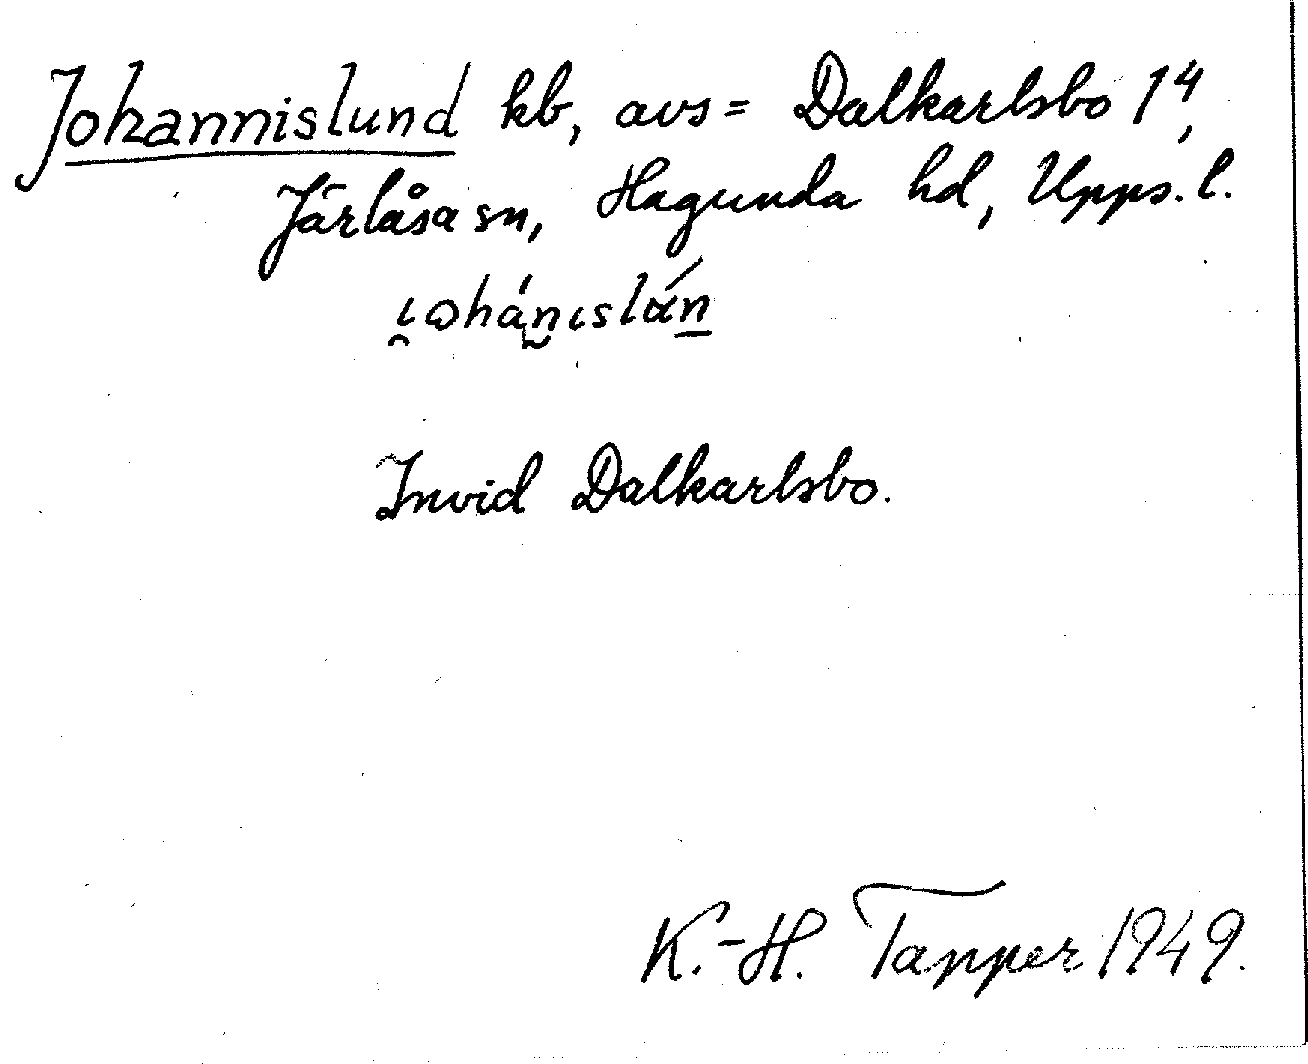 Johannislund kb, avs = Dalkarlsbo 1⁴,
Järlåsa sn, Hagunda hd, Upps. l.
Invid Dalkarlsbo.
K.-H. Tapper 1949.